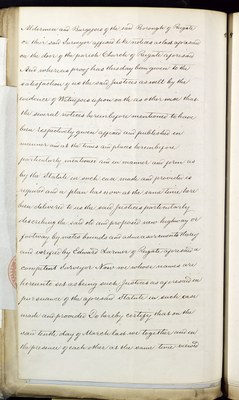 Aldermen and Burgesses of the said Borough of Reigate
or their said Surveyor affixed like notices as last aforesaid
on the door of the parish Church of Reigate aforesaid
And whereas proof has this day been given to the
satisfaction of us the said Justices as well by the
evidence of Witnesses upon oath as otherwise that
the several notices hereinbefore mentioned to have
been respectively given affixed and published in
manner and at the times and places hereinbefore
particularly mentioned and in manner and form as
by the Statute in such case made and provided is
required and a plan has even at the same time here
been delivered to us the said Justices particularly
describing the said old and proposed new highway or
footway by metes bounds and admeasurements thereof
and verified by Edward Larmer of Reigate aforesaid a
competent Surveyor Now we whose names are
hereunto set as being such Justices as aforesaid in
pursuance of the aforesaid Statute in such case
made and provided Do hereby certify that on the
said tenth day of March last we together and in
the presence of each other at the same time viewed